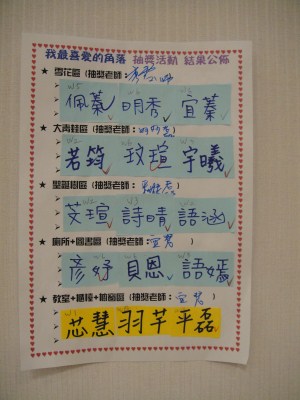 我最喜愛的角落 抽獎活動 結果公佈
★ 雪花區 (抽獎老師：
佩蓁 明秀 宜蓁
★ 大青蛙區 (抽獎老師：
若筠 玟瑄 宇曦
★ 聖誕樹區 (抽獎老師：
艾瑄 詩晴 語涵
★ 廁所+圖書區 (抽獎老師：宜君)
彥妤 貝恩 語嫣
★ 教室+櫥櫃+佈窗區 (抽獎老師：宜君)
芯慧 羽芊 平磊